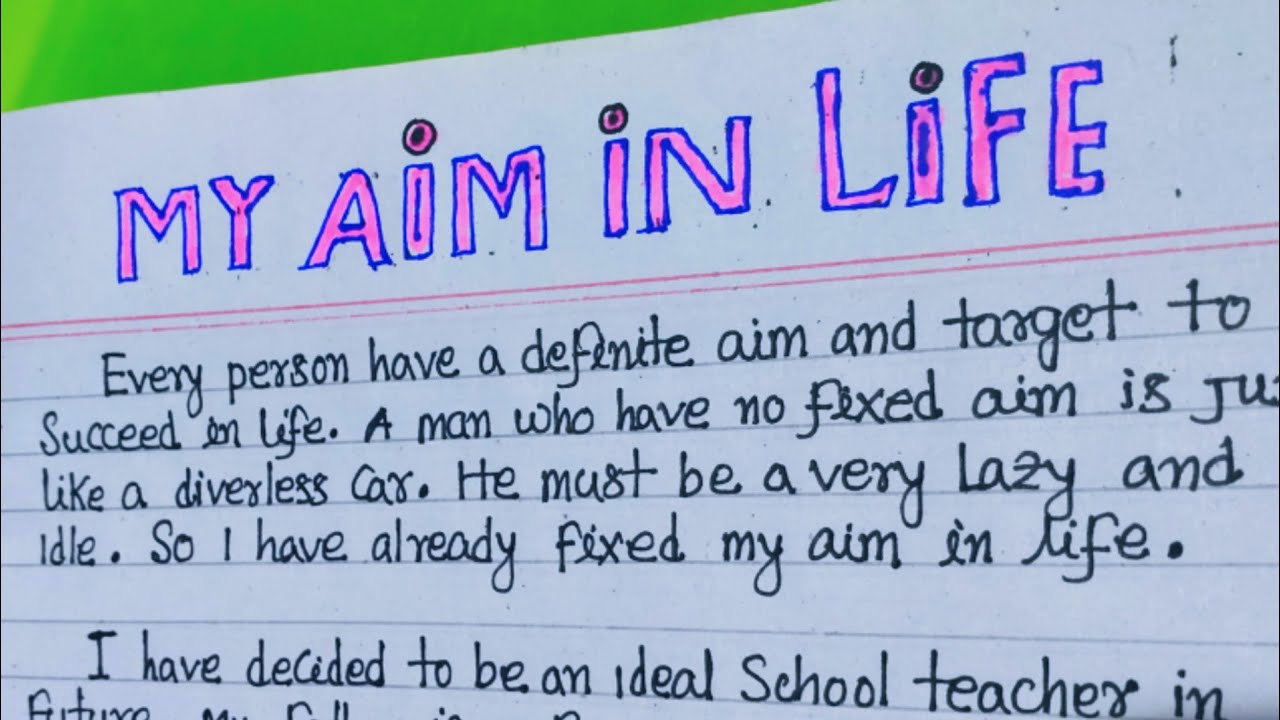 MY AiM iN LiFE
Every person have a definite aim and target to
Succeed in life. A man who have no fixed aim is
like a diverless car. He must be a very lazy and
idle. So I have already fixed my aim in life.
I have decided to be an ideal School teacher in
Future